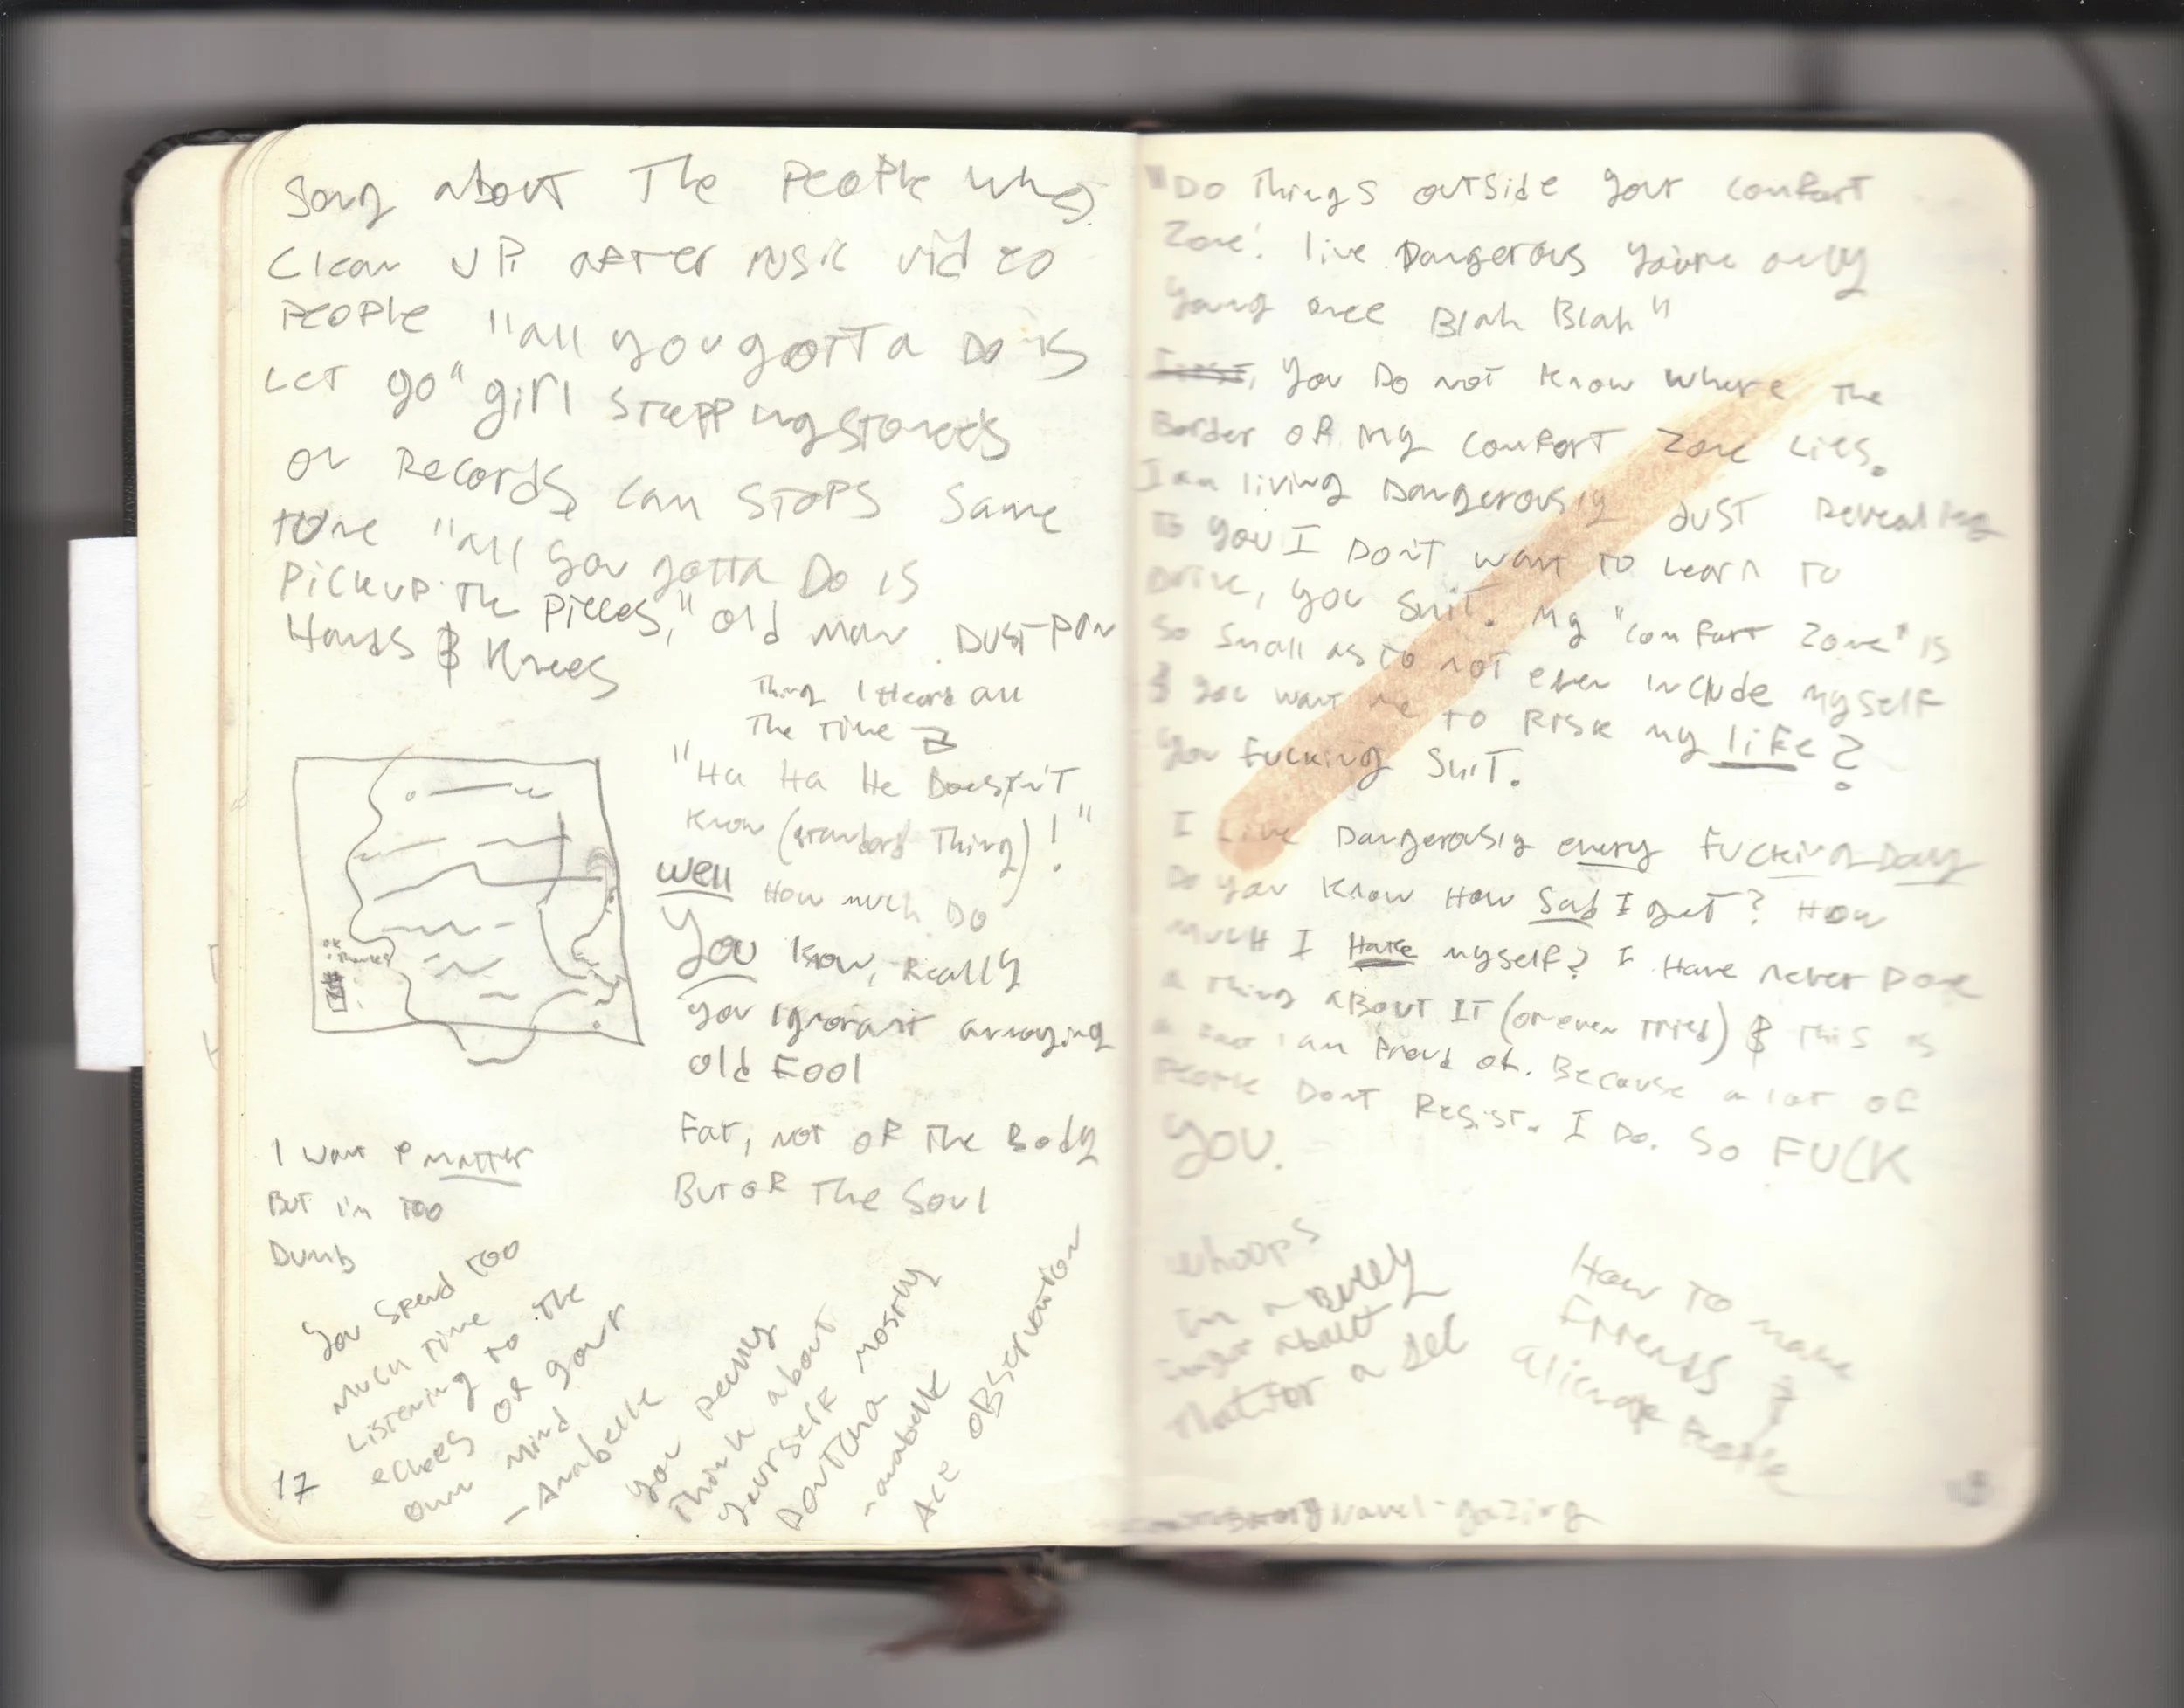 Song about The People who
Clean UP after music video
People "all you gotta Do is
Let go" girl stepping stones
on Records, can stops same
tune "all you gotta Do is
Pick up the pieces," old man Dust pan
Hands & Knees
Thing I Heard all
The Time
"Ha Ha He Doesn't
Know (standard Thing)!"
Well How much Do
You Know, Really
you ignorant annoying
old Fool
Fat, not of the Body
But of The Soul
ok
thanks
I want to matter
But I'm Too
Dumb
You spend too
much time
Listening to the
echoes of your
own mind
- Anabelle
You really
Think about
yourself mostly
Dontcha
- anabelle
Ace observation
17
"Do Things outside your comfort
Zone! live Dangerous you're only
young once Blah Blah"
You Do not Know where The
Border of my comfort zone Lies.
I am living Dangerously Just Revealing
to you I Don't want to learn to
Drive, you suit. My "comfort zone" is
so small as to not even include myself
& you want me to Risk my life?
You Fucking Suit.
I Live Dangerously every Fucking Day
Do you Know How Sad I get? How
much I Hate myself? I Have never Done
a Thing about it (or even Tried) & This is
a I am Proud of. Because a lot of
People Dont Resist. I Do. So FUCK
YOU.
whoops
I'm a Bully
forgot about
that for a sec
How to make
Friends &
alienate People
Navel-gazing